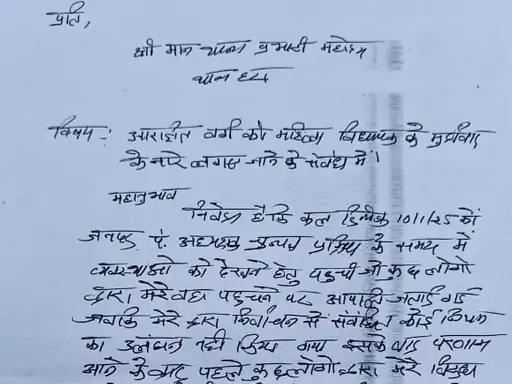 प्रति,
श्री मान थाना प्रभारी महोदय
थाना
विषय:- आरक्षित वर्ग की महिला विधायक के मुर्दाबाद
के नारे लगाए जाने के संबंध में।
महानुभाव
निवेदन है कि कल दिनांक 10/1/25 को
जनपद पं. अध्यक्ष प्रक्रिया के समय में
व्यवस्थाओं को देखने हेतु पहुची जो कुछ लोगो
द्वारा मेरे वहा पहुचने पर आपत्ति जताई गई
जबकि मेरे द्वारा निर्वाचन से संबंधित कोई नियम
का उलंघन नही किया गया इसके बाद
आने के पहले कुछ लोगो द्वारा मेरे विरूद्ध